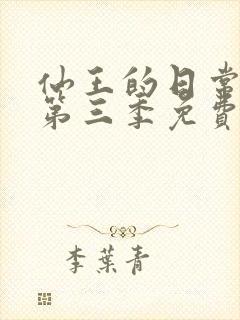 仙王的日常
第三季免費
李葉青